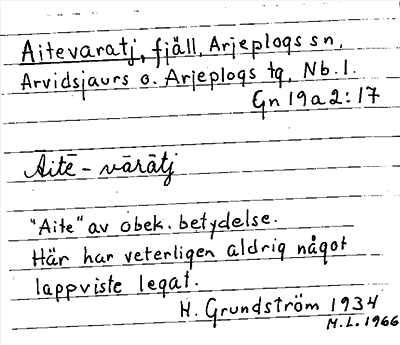 Aitevaratj, fjäll, Arjeplogs sn,
Arvidsjaurs o. Arjeplogs tg, Nb. l.
Gn 19a2:17
Aite - vārātj
"Aite" av obek. betydelse.
Här har veterligen aldrig något
lappviste legat.
H. Grundström 1934
M.L. 1966